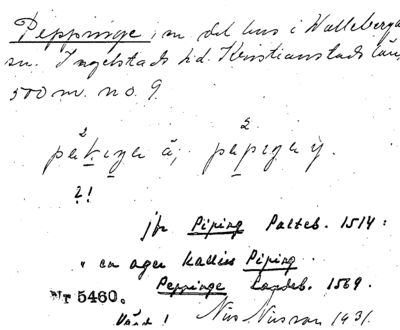 Peppinge, en del hus i Walleberga
sn. Ingelstads hd. Kristianstads län,
500 m. no. 9.
2 2
?!
jfr Piping Palteb. 1514.
" en ager kalless Piping.
Peppinge Landeb. 1569.
Nr 5460.
Nils Nilsson 1931.